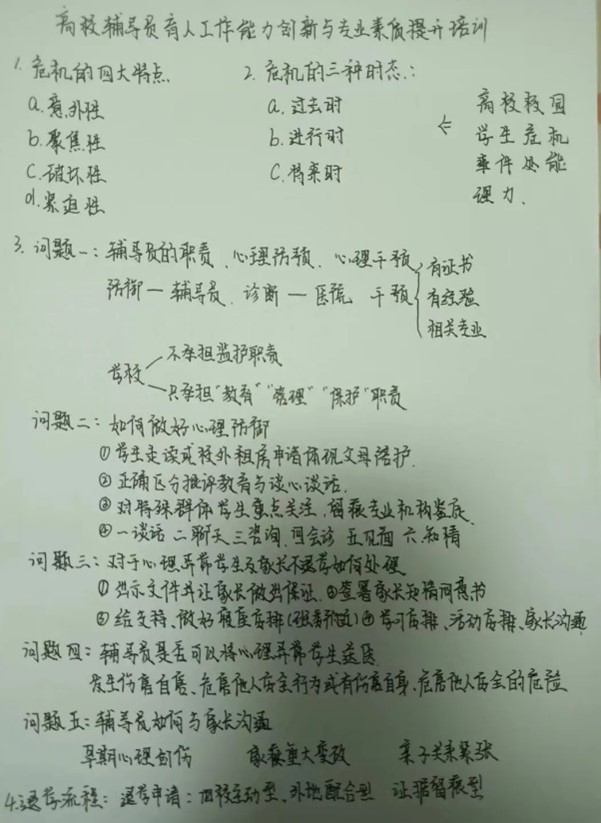 高校辅导员育人工作能力创新与专业素质提升培训
1. 危机的四大特点 2. 危机的三种时态:
a. 意外性 a. 过去时
b. 聚焦性 b. 进行时
c. 破坏性 c. 将来时
d. 紧迫性
← 高校校园
学生危机
事件处能
理力.
3. 问题一: 辅导员的职责、心理防预、心理干预
防御一辅导员、诊断一医院 干预
有证书
有经验
相关专业
学校
不承担监护职责
只承担"教育""管理""保护"职责
问题二: 如何做好心理防御
① 学生走读或校外租房申请体现父母陪护.
② 正确区分批评教育与谈心谈话.
③ 对特殊群体学生重点关注、留痕专业机构鉴底.
④ 一谈话 二聊天 三咨询 四会诊 五见面 六知情
问题三: 对于心理异常学生及家长不退学如何处理
① 出示文件并让家长做出保证. ② 签署家长知情同意书
③ 给支持、做好寝室安排 ④ 学习安排、活动安排、家长沟通
问题四: 辅导员是否可以将心理异常学生送医
发生伤害自害、危害他人安全行为或有伤害自身、危害他人安全的危险
问题五: 辅导员如何与家长沟通
早期心理创伤 家庭重大变故 亲子关系紧张
4. 退学流程: 退学申请: 回校主动型、外地配合型 证据留痕型